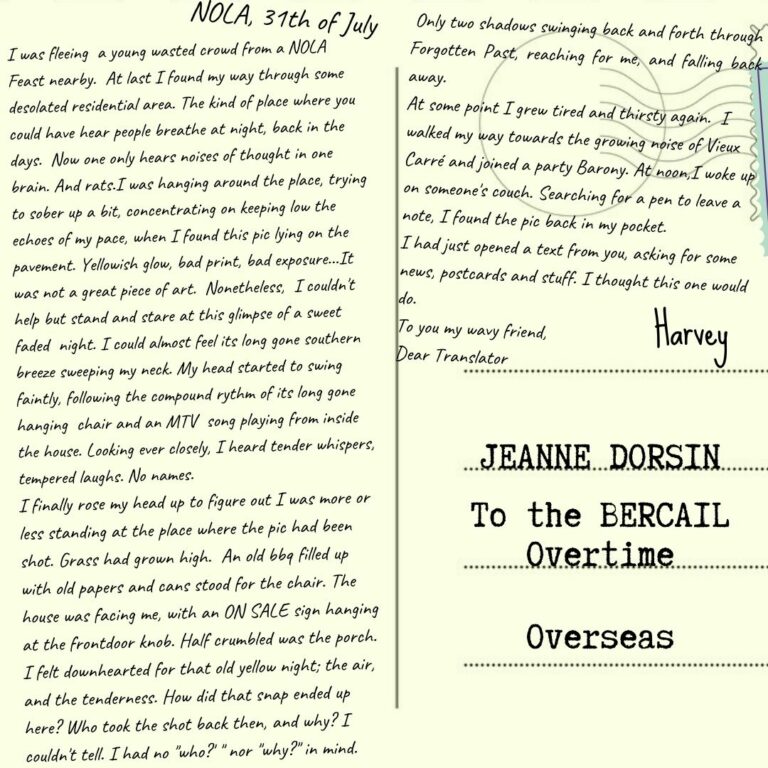 NOLA, 31th of July
I was fleeing a young wasted crowd from a NOLA
Feast nearby. At last I found my way through some
desolated residential area. The kind of place where you
could have hear people breathe at night, back in the
days. Now one only hears noises of thought in one
brain. And rats.I was hanging around the place, trying
to sober up a bit, concentrating on keeping low the
echoes of my pace, when I found this pic lying on the
pavement. Yellowish glow, bad print, bad exposure...It
was not a great piece of art. Nonetheless, I couldn't
help but stand and stare at this glimpse of a sweet
faded night. I could almost feel its long gone southern
breeze sweeping my neck. My head started to swing
faintly, following the compound rythm of its long gone
hanging chair and an MTV song playing from inside
the house. Looking ever closely, I heard tender whispers,
tempered laughs. No names.
I finally rose my head up to figure out I was more or
less standing at the place where the pic had been
shot. Grass had grown high. An old bbq filled up
with old papers and cans stood for the chair. The
house was facing me, with an ON SALE sign hanging
at the frontdoor knob. Half crumbled was the porch.
I felt downhearted for that old yellow night; the air,
and the tenderness. How did that snap ended up
here? Who took the shot back then, and why? I
couldn't tell. I had no "who?' " nor "why?" in mind.
Only two shadows swinging back and forth through
Forgotten Past, reaching for me, and falling back
away.
At some point I grew tired and thirsty again. I
walked my way towards the growing noise of Vieux
Carré and joined a party Barony. At noon,I woke up
on someone's couch. Searching for a pen to leave a
note, I found the pic back in my pocket.
I had just opened a text from you, asking for some
news, postcards and stuff. I thought this one would
do.
To you my wavy friend,
Dear Translator
Harvey
JEANNE DORSIN
To the BERCAIL
Overtime
Overseas